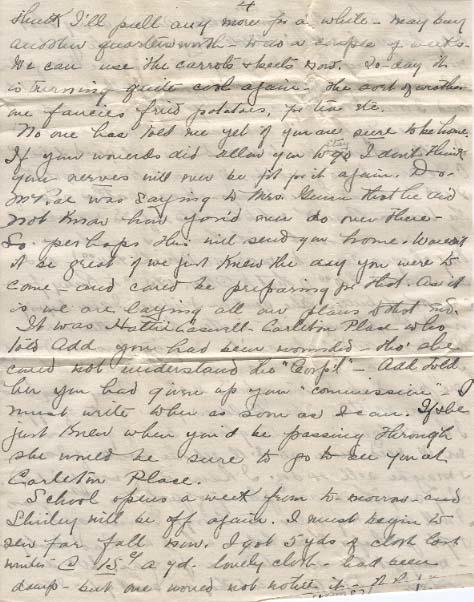 4
think I'll pull any more for a while - may buy
another quarters worth - in a couple of weeks.
We can use the carrots & beets now. To-day it
is turning quite cool again - the sort of weather
one fancies fried potatoes, etc.
No one has told me yet if you are sure to be home.
If your wounds did allow you to stay I don't think
your nerves will ever be fit for it again. Dr.
was saying to Mrs. that he did
not know how you'd ever do over there -
So perhaps this will send you home. Wouldn't
it be great if we just knew the day you were to
come - and could be preparing for that. As it
is we are laying all our plans to that end.
It was Hattie Caswell - Carleton Place who
told Add you had been wounded - tho' she
could not understand the "Corp'l" - Add told
her you had given up your "commission" - I
must write her as soon as I can. If she
just knew when you'd be passing through
she would be sure to go to see you at
Carleton Place.
School opens a week from to-morrow - and
Shirley will be off again. I must begin to
sew for fall now. I got 5 yds of cloth last
winter @ 15¢ a yd. lovely cloth - had been
damp - but one would not notice it -